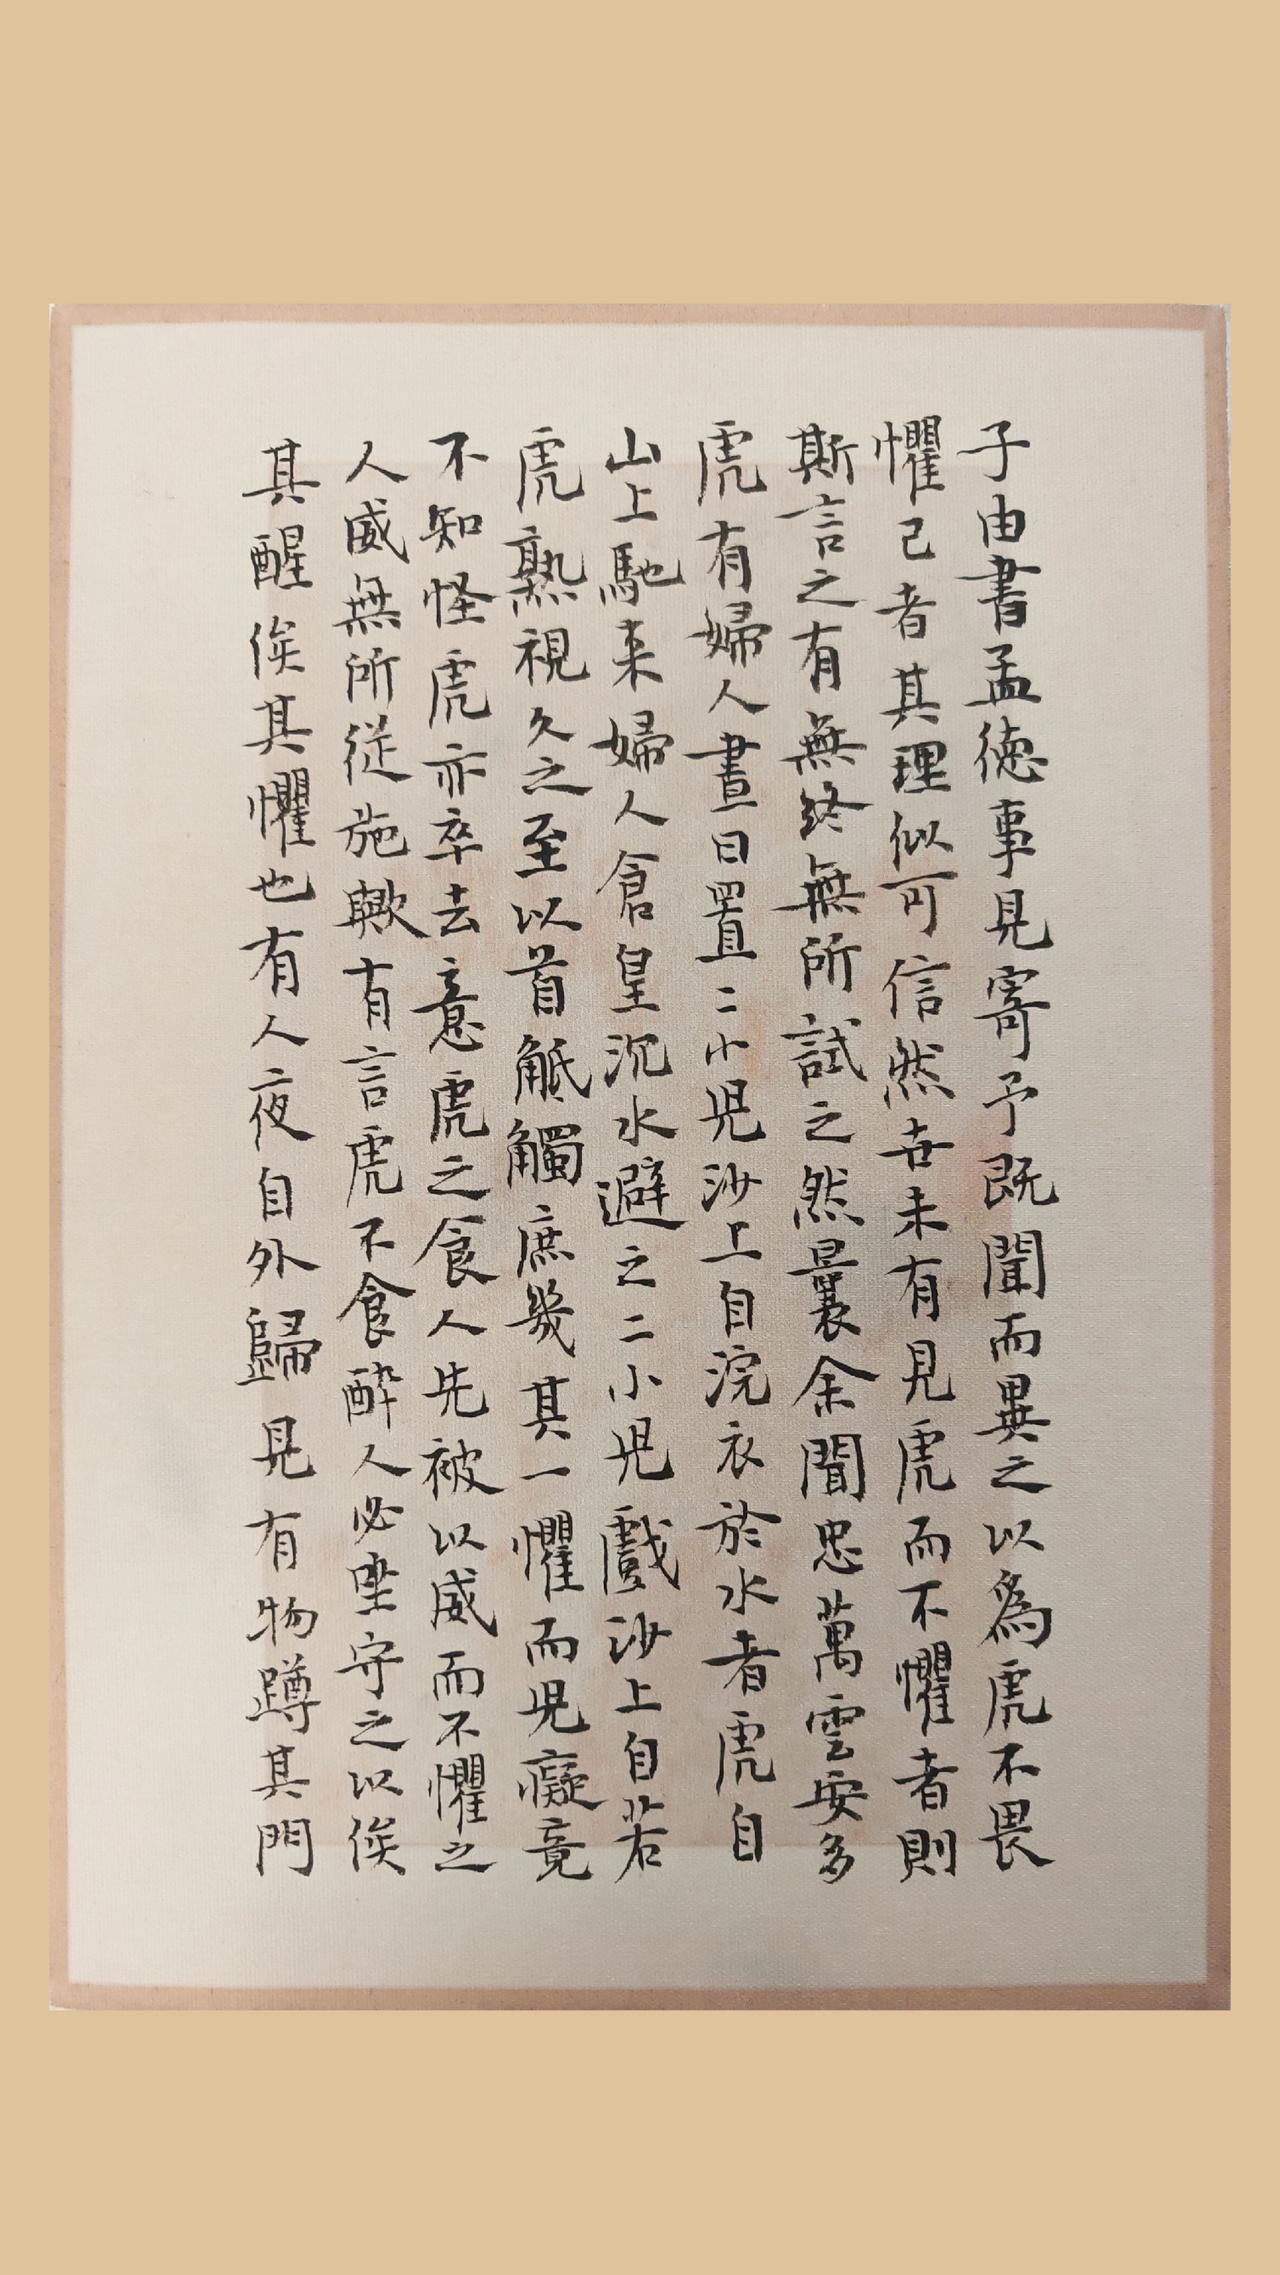 子由書孟德事見寄予既聞而異之以為虎不畏
懼己者其理似可信然世未有見虎而不懼者則
斯言之有無終無所試之然曩余聞忠萬雲安多
虎有婦人晝日置二小兒沙上自浣衣於水者虎自
山上馳来婦人倉皇沉水避之二小兒戲沙上自若
虎熟視久之至以首觝觸庶幾其一懼而兒癡竟
不知怪虎亦卒去意虎之食人先被以威而不懼之
人威無所從施歟有言虎不食醉人必坐守之以俟
其醒俟其懼也有人夜自外歸見有物蹲其門